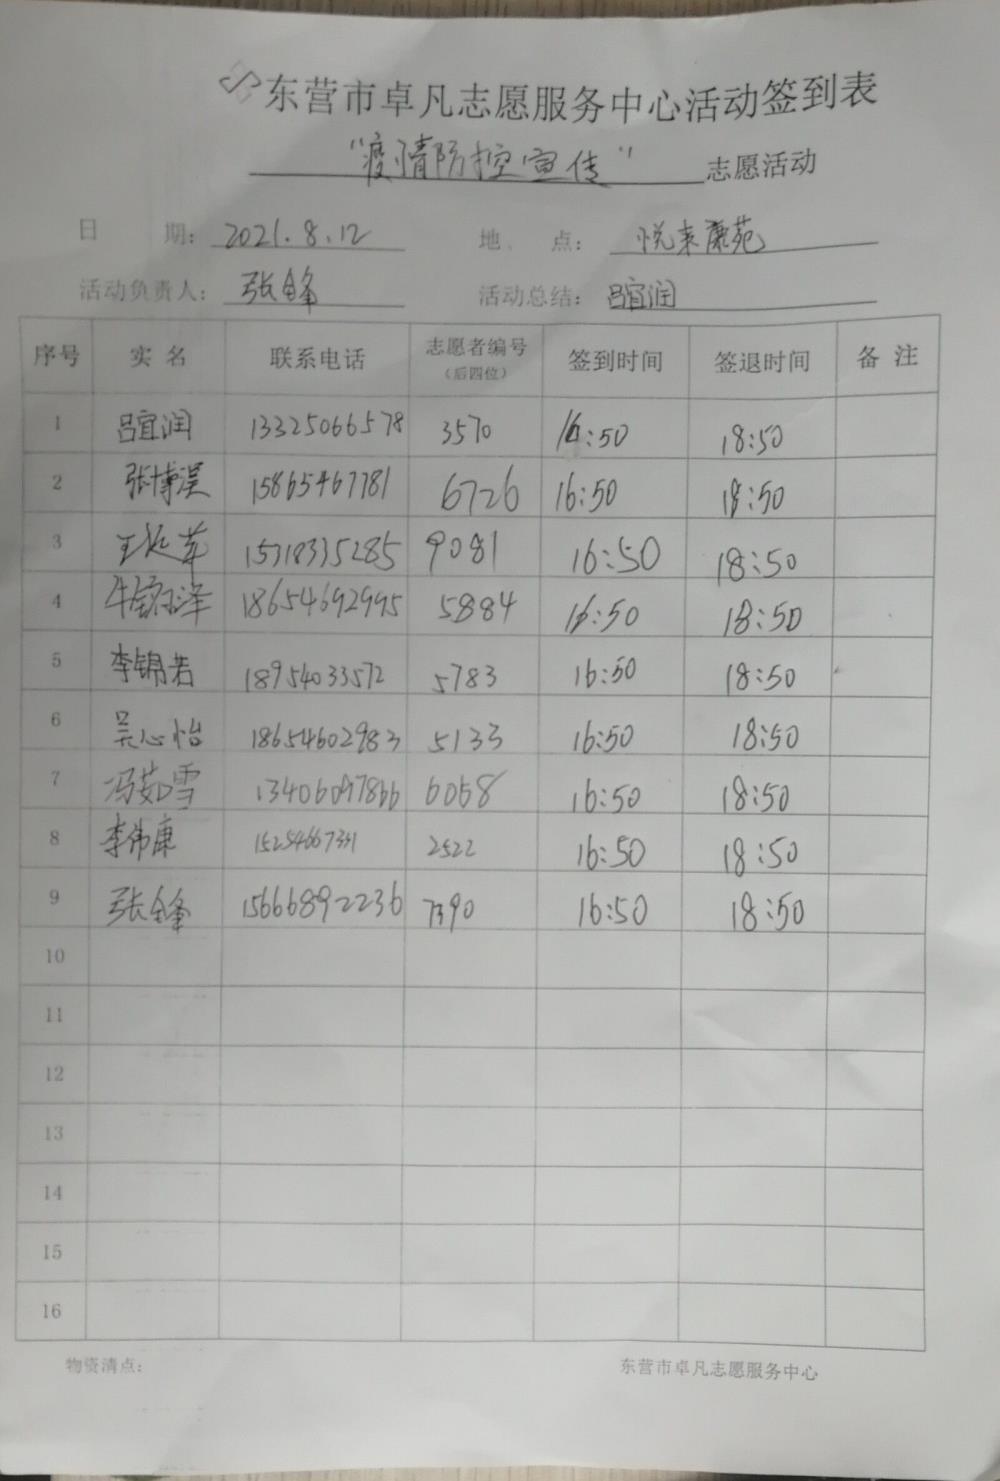 东营市卓凡志愿服务中心活动签到表
“疫情防控宣传”志愿活动
日 期：2021.8.12 地 点：悦来康苑
活动负责人：张金峰 活动总结：吕宜润
序号 实 名 联系电话 志愿者编号（后四位） 签到时间 签退时间 备 注
1 吕宜润 13325066578 3570 16:50 18:50
2 张博淏 15865467781 6726 16:50 18:50
3 王延苹 15318335285 9081 16:50 18:50
4 牛 泽 18654692995 5884 16:50 18:50
5 李锦若 18954033572 5783 16:50 18:50
6 吴心怡 18654602983 5133 16:50 18:50
7 冯茹雪 13406097866 6068 16:50 18:50
8 李伟康 15254667331 2522 16:50 18:50
9 张金峰 15666892236 7390 16:50 18:50
10
11
12
13
14
15
16
物资清点： 东营市卓凡志愿服务中心